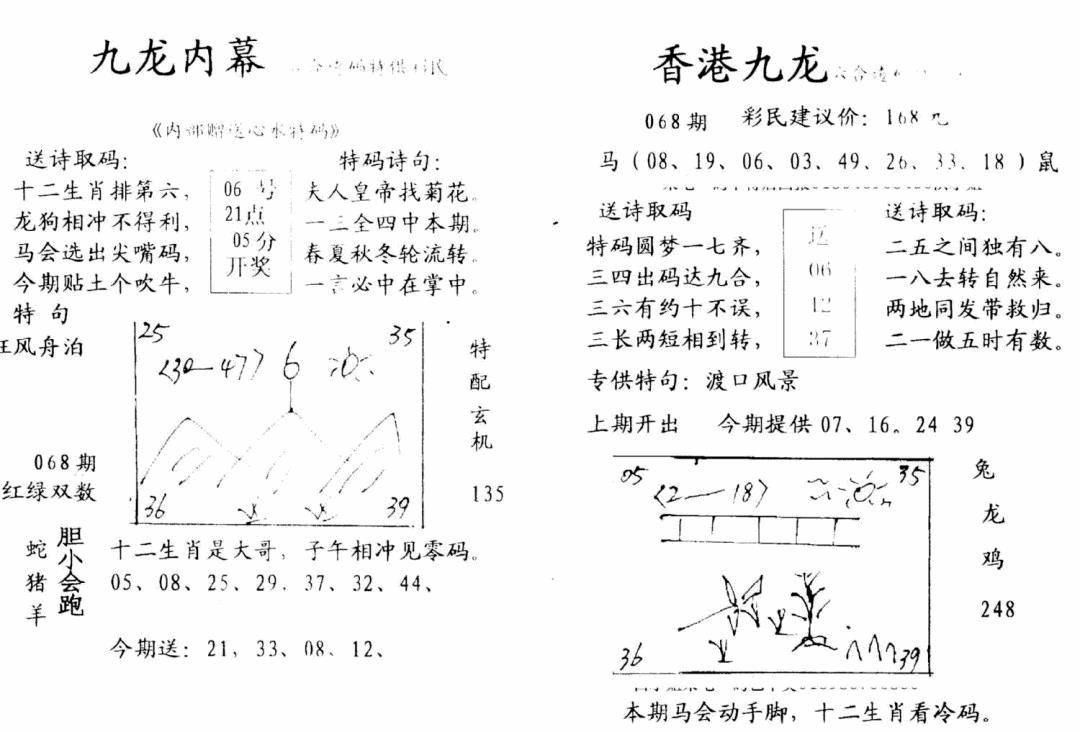 九龙内幕
《内部赠送心水特码》
送诗取码:
十二生肖排第六,
龙狗相冲不得利,
马会选出尖嘴码,
今期贴土个吹牛,
06 号
21点
05分
开奖
特码诗句:
夫人皇帝找菊花。
一三全四中本期。
春夏秋冬轮流转。
一言必中在掌中。
特 句
狂风舟泊
068期
红绿双数
25
35
<30—47> 6
36
39
特配玄机
135
蛇猪羊
胆小会跑
十二生肖是大哥, 子午相冲见零码。
05、08、25、29. 37、32、44、
今期送: 21, 33、08、12、
香港九龙
068期 彩民建议价: 168元
马（08、19、06、03、49、26、33. 18）鼠
送诗取码
特码圆梦一七齐,
三四出码达九合,
三六有约十不误,
三长两短相到转,
送
06
12
37
送诗取码:
二五之间独有八。
一八去转自然来。
两地同发带救归。
二一做五时有数。
专供特句: 渡口风景
上期开出 今期提供 07、16。24 39
05
35
<2—18>
36
39
兔
龙
鸡
248
本期马会动手脚, 十二生肖看冷码。